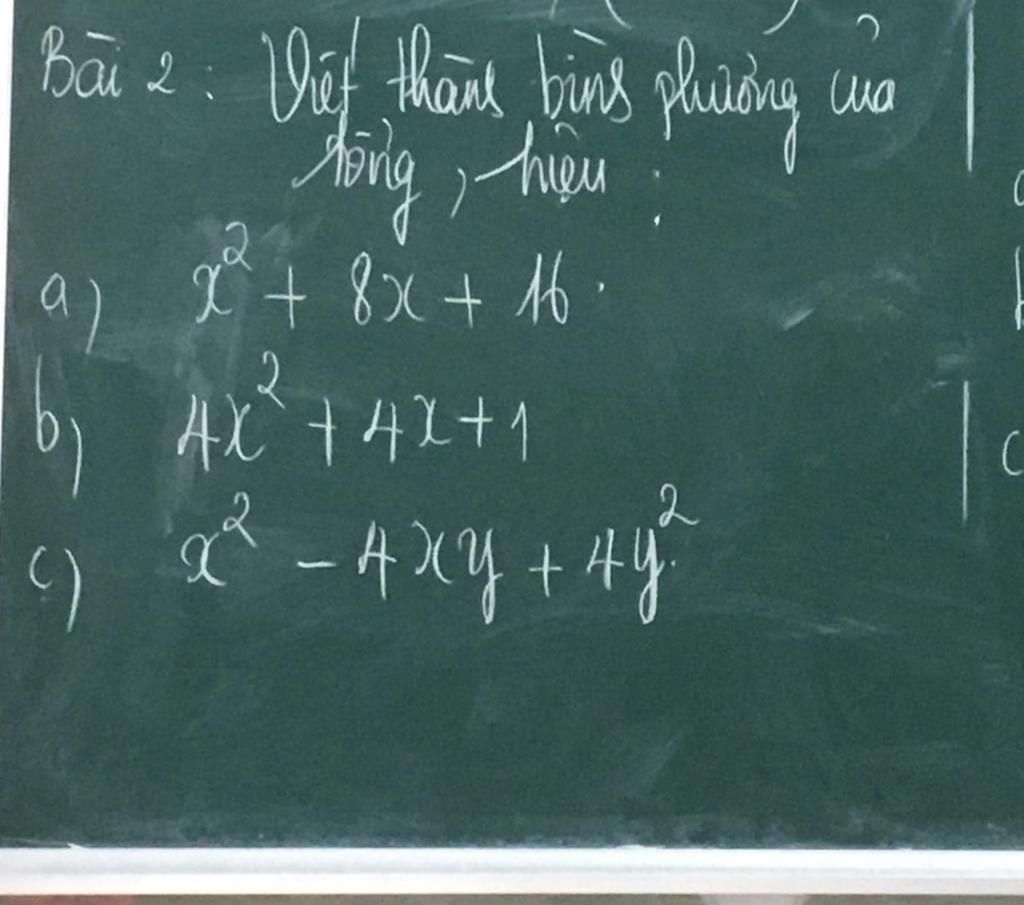 Bài 2 : Viết thành bình phương của
tổng, hiệu :
a) x² + 8x + 16.
b) 4x² + 4x + 1
c) x² - 4xy + 4y².